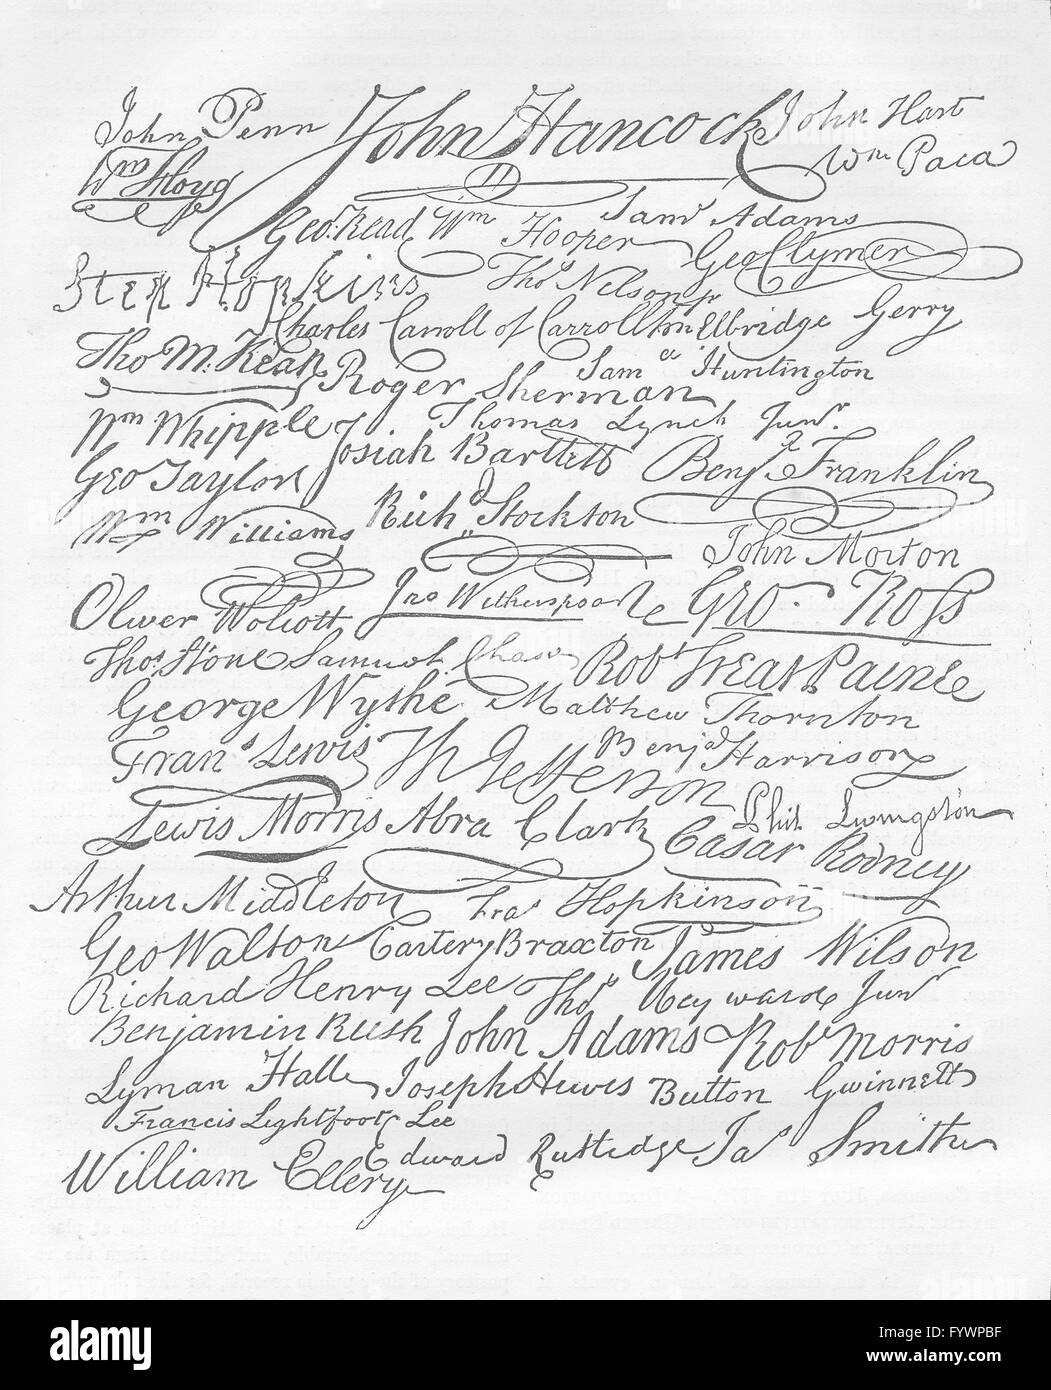 John Penn John Hancock John Hart
Wm Floyd Wm Paca
Geo. Read Wm Hooper Saml Adams
Geo Clymer
Step Hopkins Thos Nelson jr
Charles Carroll of Carrollton Elbridge Gerry
Tho M. Kean Roger Sherman Samel Huntington
Wm Whipple Thomas Lynch Junr.
Josiah Bartlett Benja Franklin
Geo Taylor
Wm Williams Richd Stockton John Morton
Oliver Wolcott Jno Witherspoon Geo. Ross
Thos Stone Samuel Chase Robt Treat Paine
George Wythe Matthew Thornton
Frans Lewis Th Jefferson Benja Harrison
Lewis Morris Abra Clark Phil. Livingston
Casar Rodney
Arthur Middleton Fras Hopkinson
Geo Walton Carter Braxton James Wilson
Richard Henry Lee Thos Heyward Junr
Benjamin Rush John Adams Robt Morris
Lyman Hall Joseph Hewes Button Gwinnett
Francis Lightfoot Lee
William Ellery Edward Rutledge Jas Smith
alamy
alamy stock photo
FYWPBF
www.alamy.com